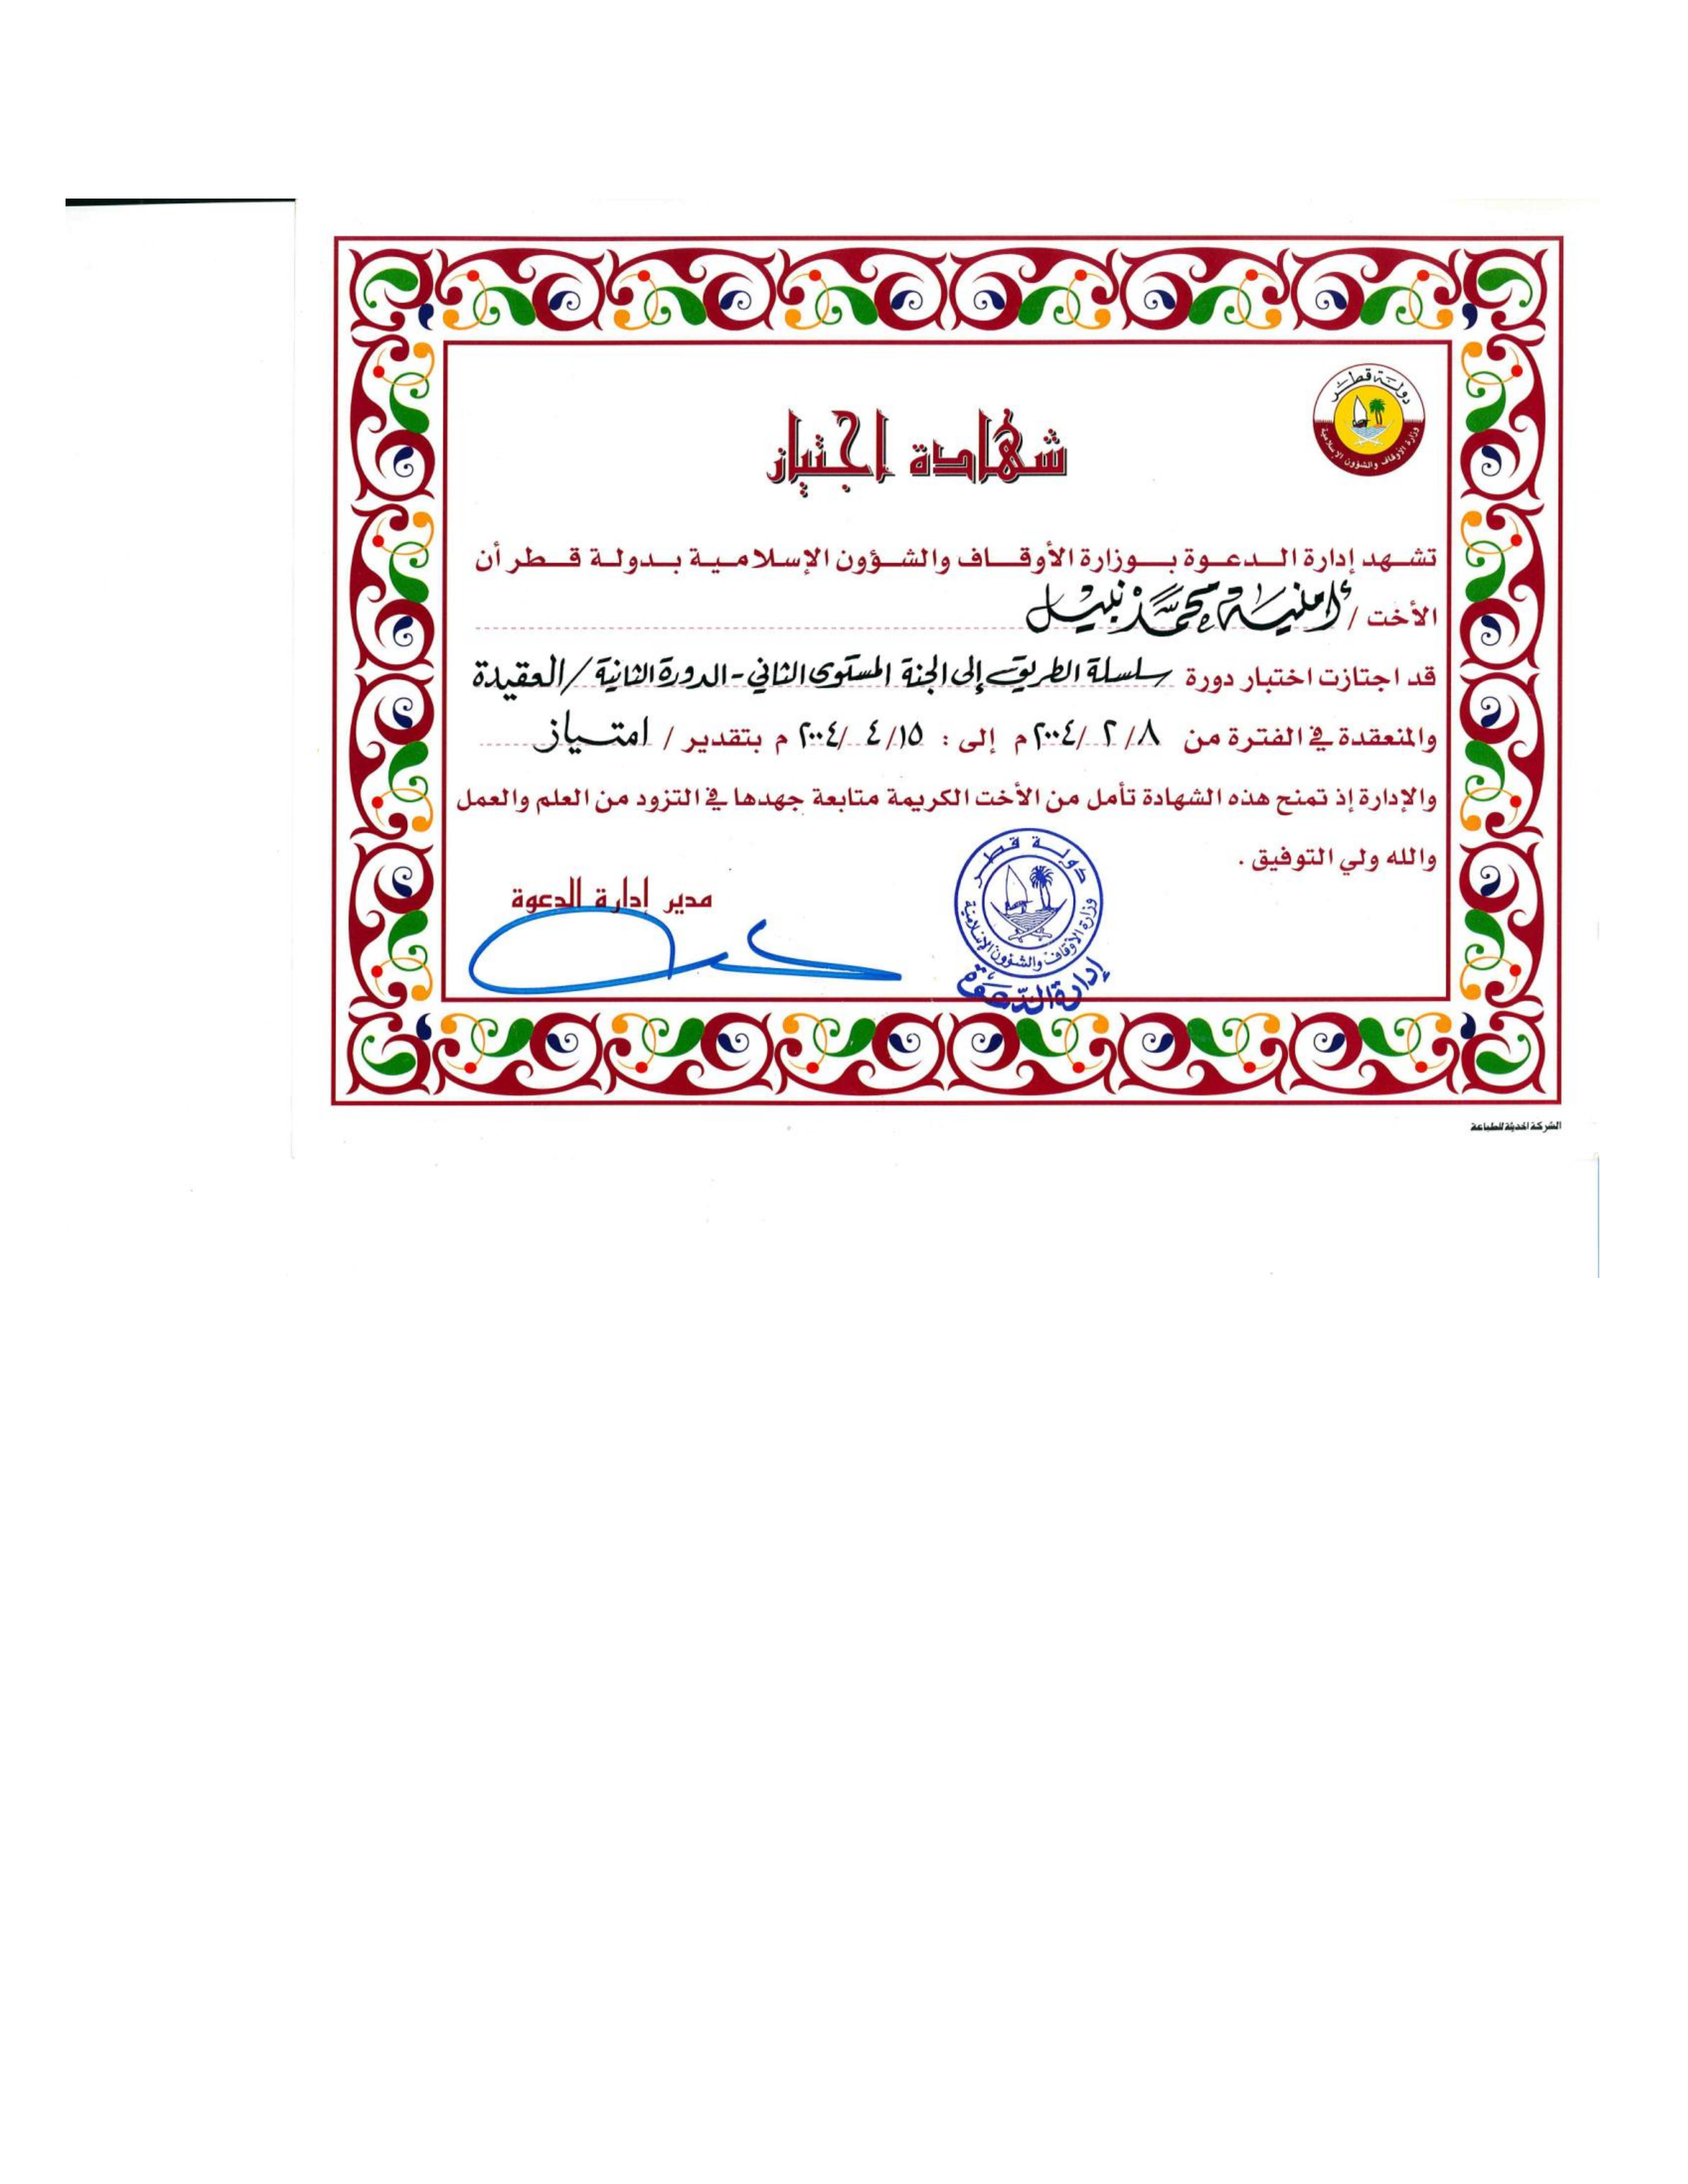 دولة قطر
وزارة الأوقاف والشؤون الإسلامية
شهادة اجتياز
تشهد إدارة الدعوة بوزارة الأوقاف والشؤون الإسلامية بدولة قطر أن
الأخت / أمنية محمد نبيل
قد اجتازت اختبار دورة سلسلة الطريق إلى الجنة المستوى الثاني - الدورة الثانية / العقيدة
والمنعقدة في الفترة من ٨ / ٢ / ٢٠٠٤ م إلى : ١٥ / ٤ / ٢٠٠٤ م بتقدير / امتياز
والإدارة إذ تمنح هذه الشهادة تأمل من الأخت الكريمة متابعة جهدها في التزود من العلم والعمل
والله ولي التوفيق .
مدير إدارة الدعوة
دولة قطر
وزارة الأوقاف والشؤون الإسلامية
إدارة الدعوة
الشركة الحديثة للطباعة